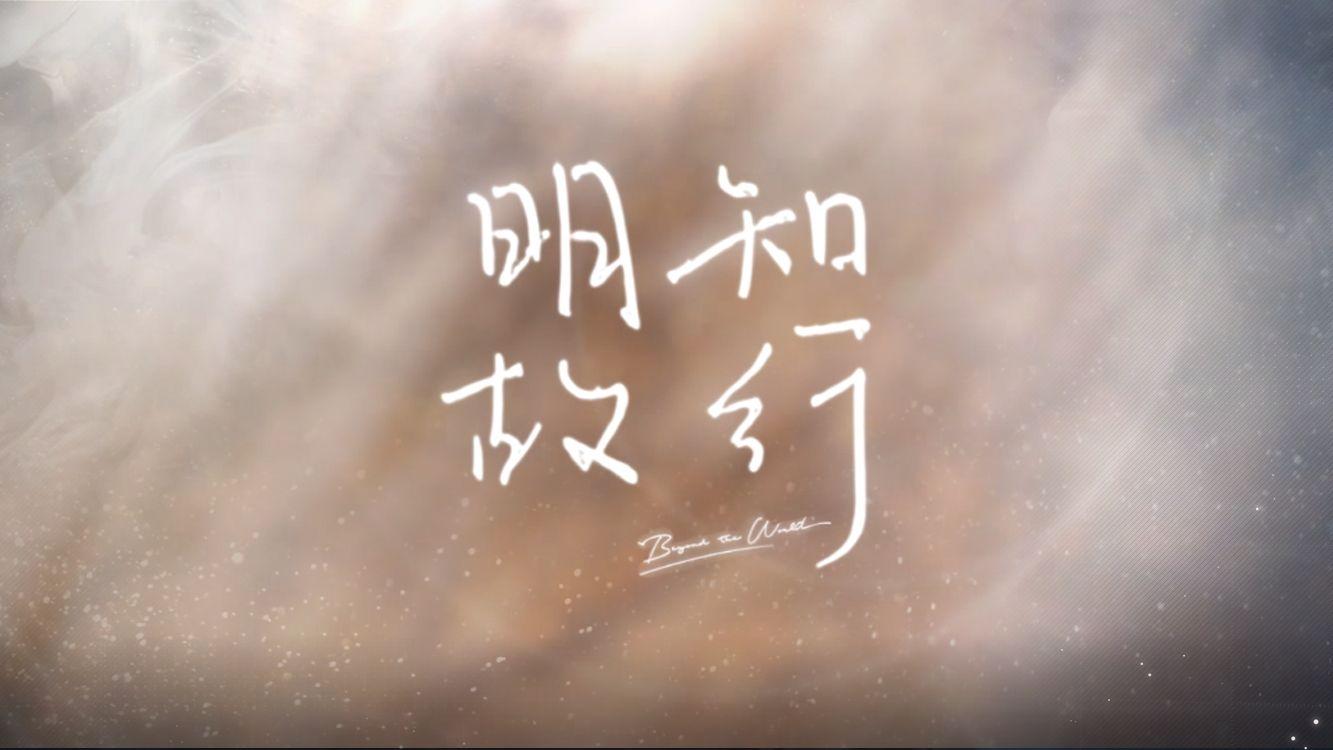 明知
故行
Beyond the World